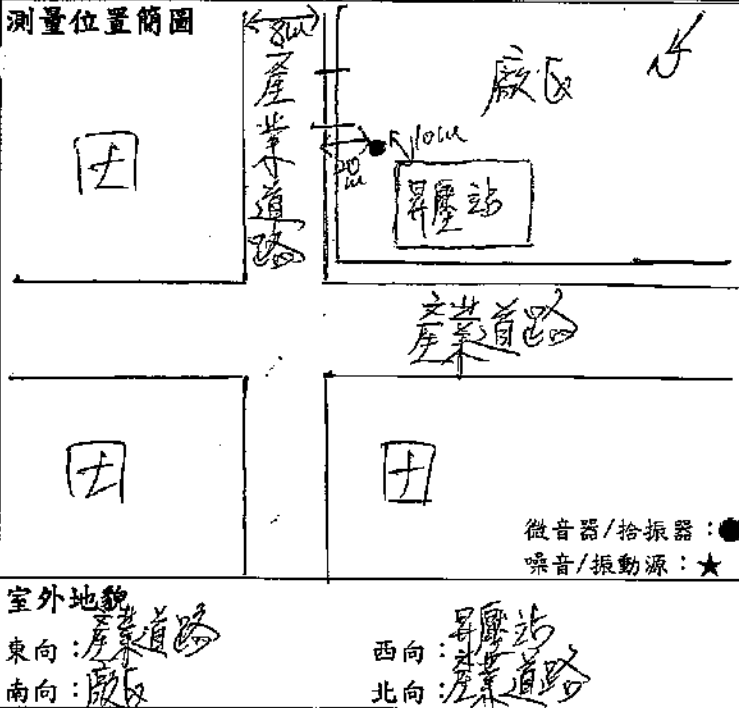 測量位置簡圖
8m
產業道路
廠區
20m
10m
昇壓站
產業道路
田
田
田
微音器/拾振器：●
噪音/振動源：★
室外地貌
東向：產業道路
西向：昇壓站
南向：廠區
北向：產業道路